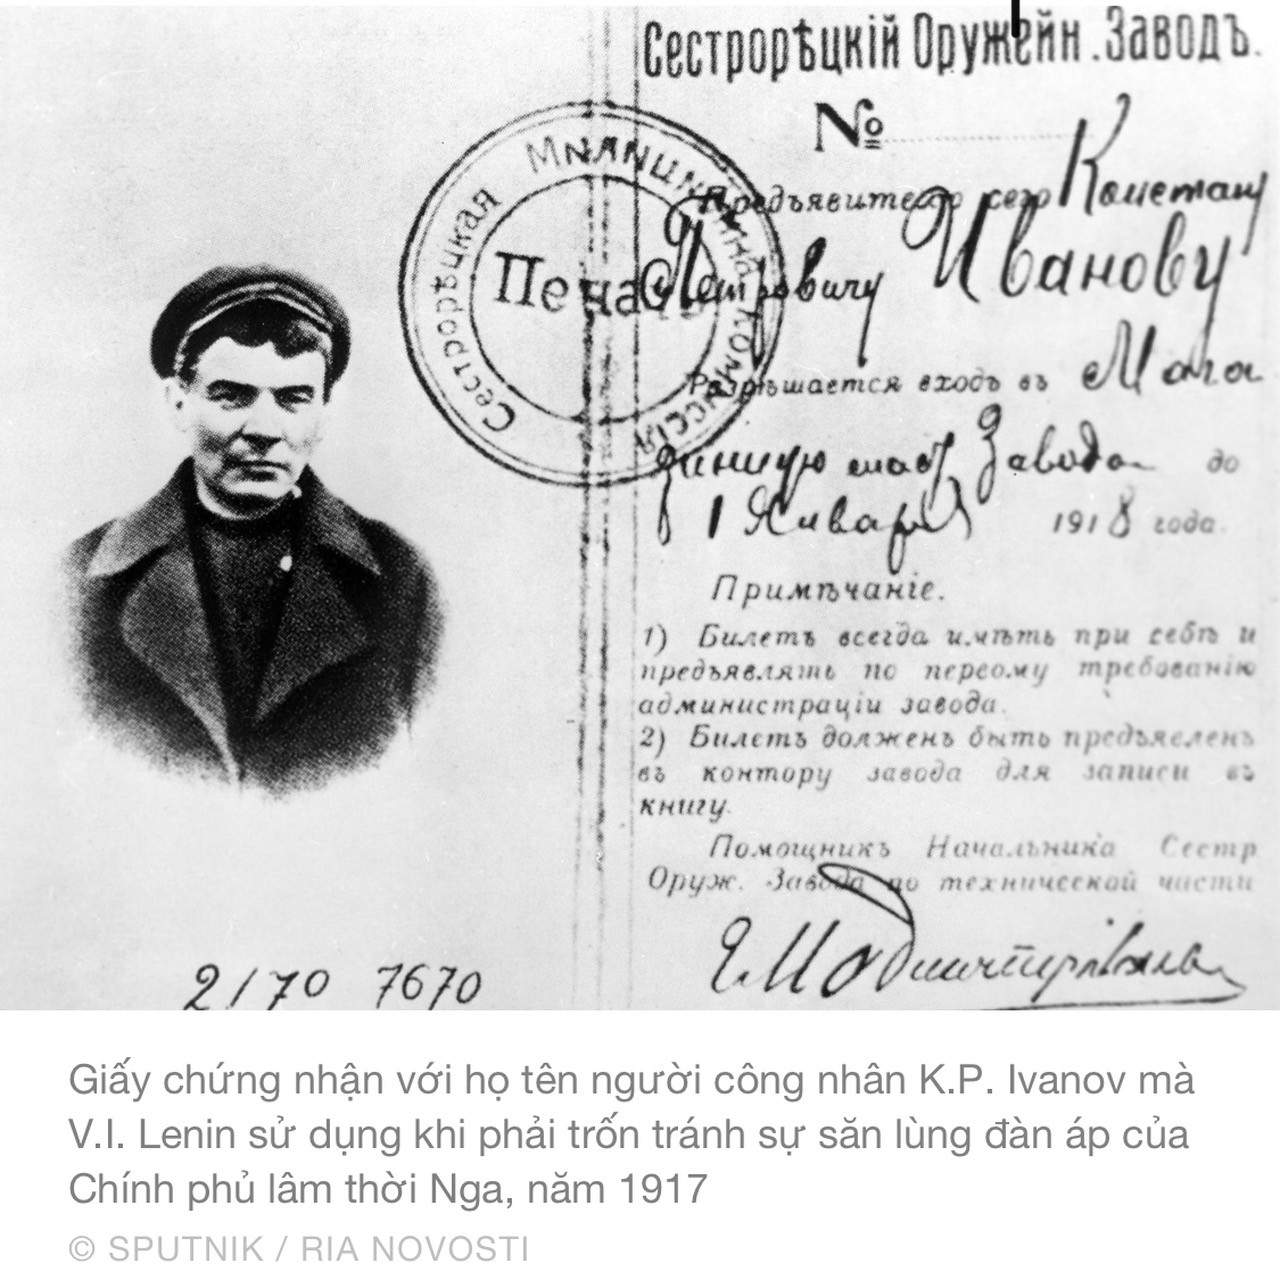 Сестрорѣцкій Оружейн. Заводъ.
№
Предъявителю сего Констант
Петровичу Иванову
Разрѣшается входъ въ Мага
зинную маст Завода до
1 Января 1918 года.
Примѣчаніе.
1) Билетъ всегда имѣть при себѣ и
предъявлять по первому требованію
администраціи завода.
2) Билетъ долженъ быть предъявленъ
въ контору завода для записи въ
книгу.
Помощникъ Начальника Сестр
Оруж. Завода по технической части
Сестрорѣцкая
Коммиссія
Печа
2170 7670
Giấy chứng nhận với họ tên người công nhân K.P. Ivanov mà
V.I. Lenin sử dụng khi phải trốn tránh sự săn lùng đàn áp của
Chính phủ lâm thời Nga, năm 1917
© SPUTNIK / RIA NOVOSTI